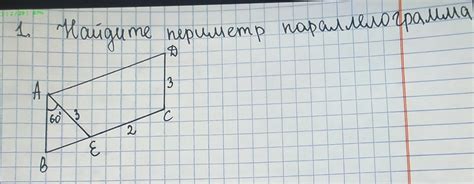 1. Найдите периметр параллелограмма
D
A
3
60°
3
C
E
2
B